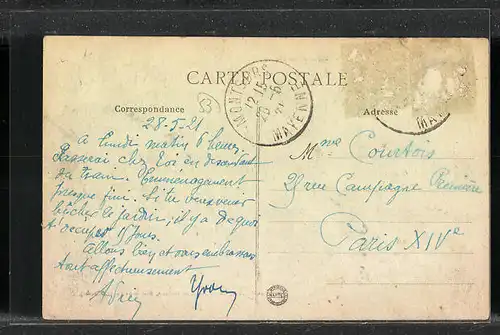 CARTE POSTALE
Correspondance
Adresse
MONTSURS
MAYENNE
12 15
28-5
21
MAY
53
28-5-21
A Lundi matin 6 heures
Passerai chez toi en descendant
du train. Emménagement
presque fini. Si tu veux venir
bêcher le jardin, il y a de quoi
t'occuper 15 jours.
Allons bien et vous embrassons
tout affectueusement
Yvon
Mme Courtois
25 rue Campagne Première
Paris XIVe